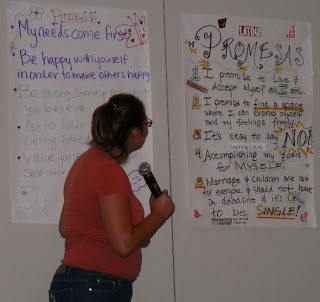 Promesas
My needs come first
Be happy with yourself
in order to make others happy
Be strong stand up for what
you believe
being safe
LATINA
PROMESAS
1 I promise to Love &
Accept Myself as I am.
2 I promise to find a space
where I can express myself
and my feelings freely
3 It's okay to say NO!
4 Accomplishing my goals
for MYSELF.
5 Marriage & Children are not
for everyone & should not have
a deadline & it's OK
to be SINGLE!